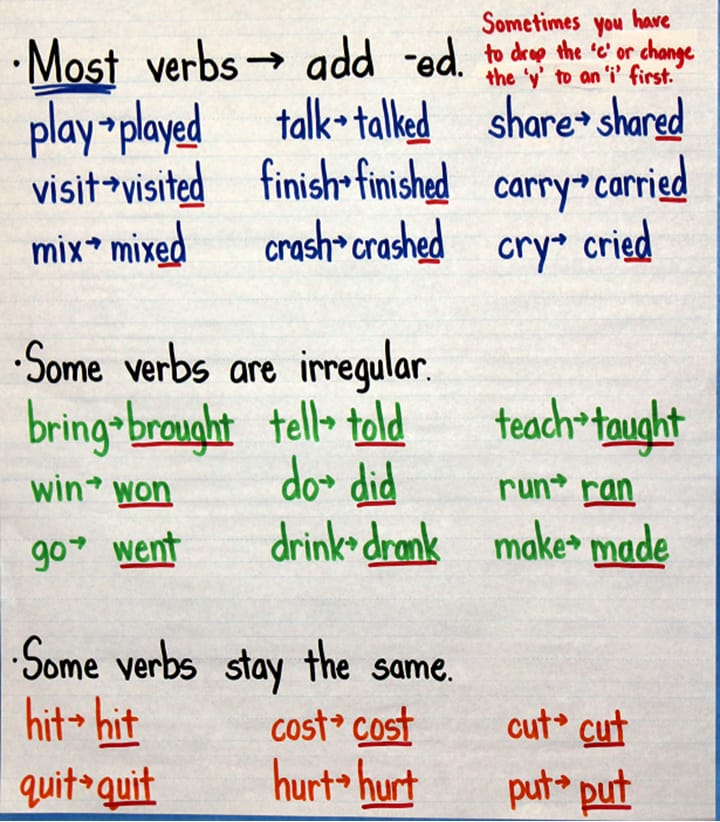 ·Most verbs → add -ed.
Sometimes you have
to drop the 'e' or change
the 'y' to an 'i' first.
play→played talk→talked share→shared
visit→visited finish→finished carry→carried
mix→mixed crash→crashed cry→cried
·Some verbs are irregular.
bring→brought tell→told teach→taught
win→won do→did run→ran
go→went drink→drank make→made
·Some verbs stay the same.
hit→hit cost→cost cut→cut
quit→quit hurt→hurt put→put